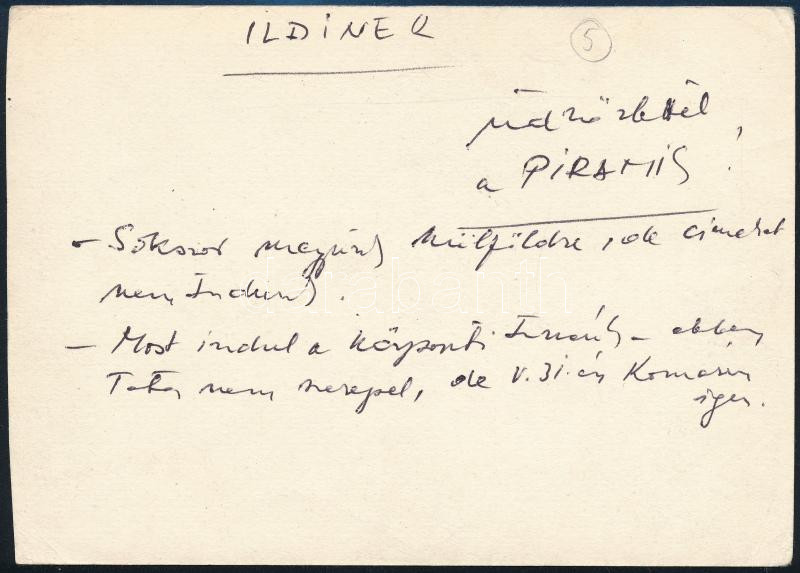 ILDINEK
5
üdvözlettel,
a PIRAMIS!
- Sokszor megyünk külföldre, de címeket
nem tudunk.
- Most indul a központi turnénk - ebben
Tata nem szerepel, de V.31-én Komárom
igen.